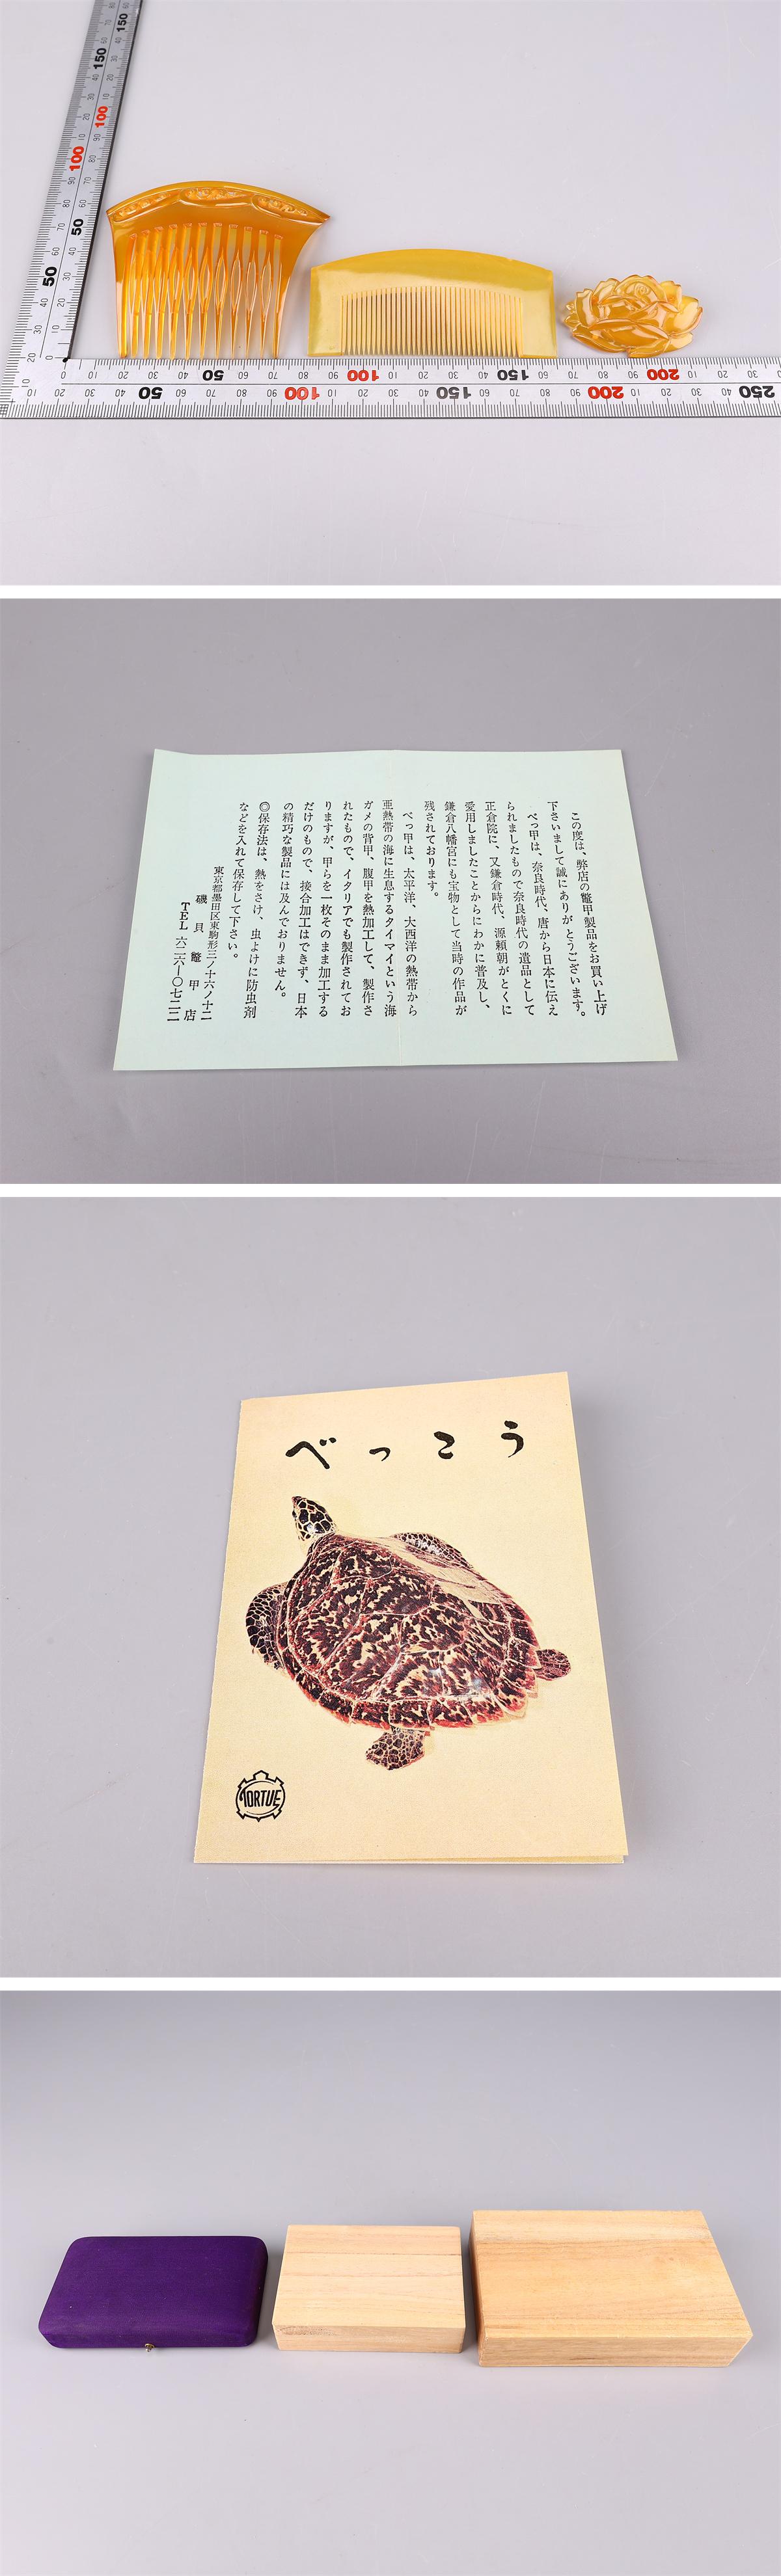 150
150
100
100
50
50
50
100
150
200
50
100
150
200
250
この度は、弊店の鼈甲製品をお買い上げ
下さいまして誠にありがとうございます。
べっ甲は、奈良時代、唐から日本に伝え
られましたもので奈良時代の遺品として
正倉院に、又鎌倉時代、源頼朝がとくに
愛用しましたことからにわかに普及し、
鎌倉八幡宮にも宝物として当時の作品が
残されております。
べっ甲は、太平洋、大西洋の熱帯から
亜熱帯の海に生息するタイマイという海
ガメの背甲、腹甲を熱加工して、製作さ
れたもので、イタリアでも製作されてお
りますが、甲らを一枚そのまま加工する
だけのもので、接合加工はできず、日本
の精巧な製品には及んでおりません。
◎保存法は、熱をさけ、虫よけに防虫剤
などを入れて保存して下さい。
東京都墨田区東駒形三ノ十六ノ十二
磯貝鼈甲店
TEL 六二六―〇七二二
べっこう
TORTUE